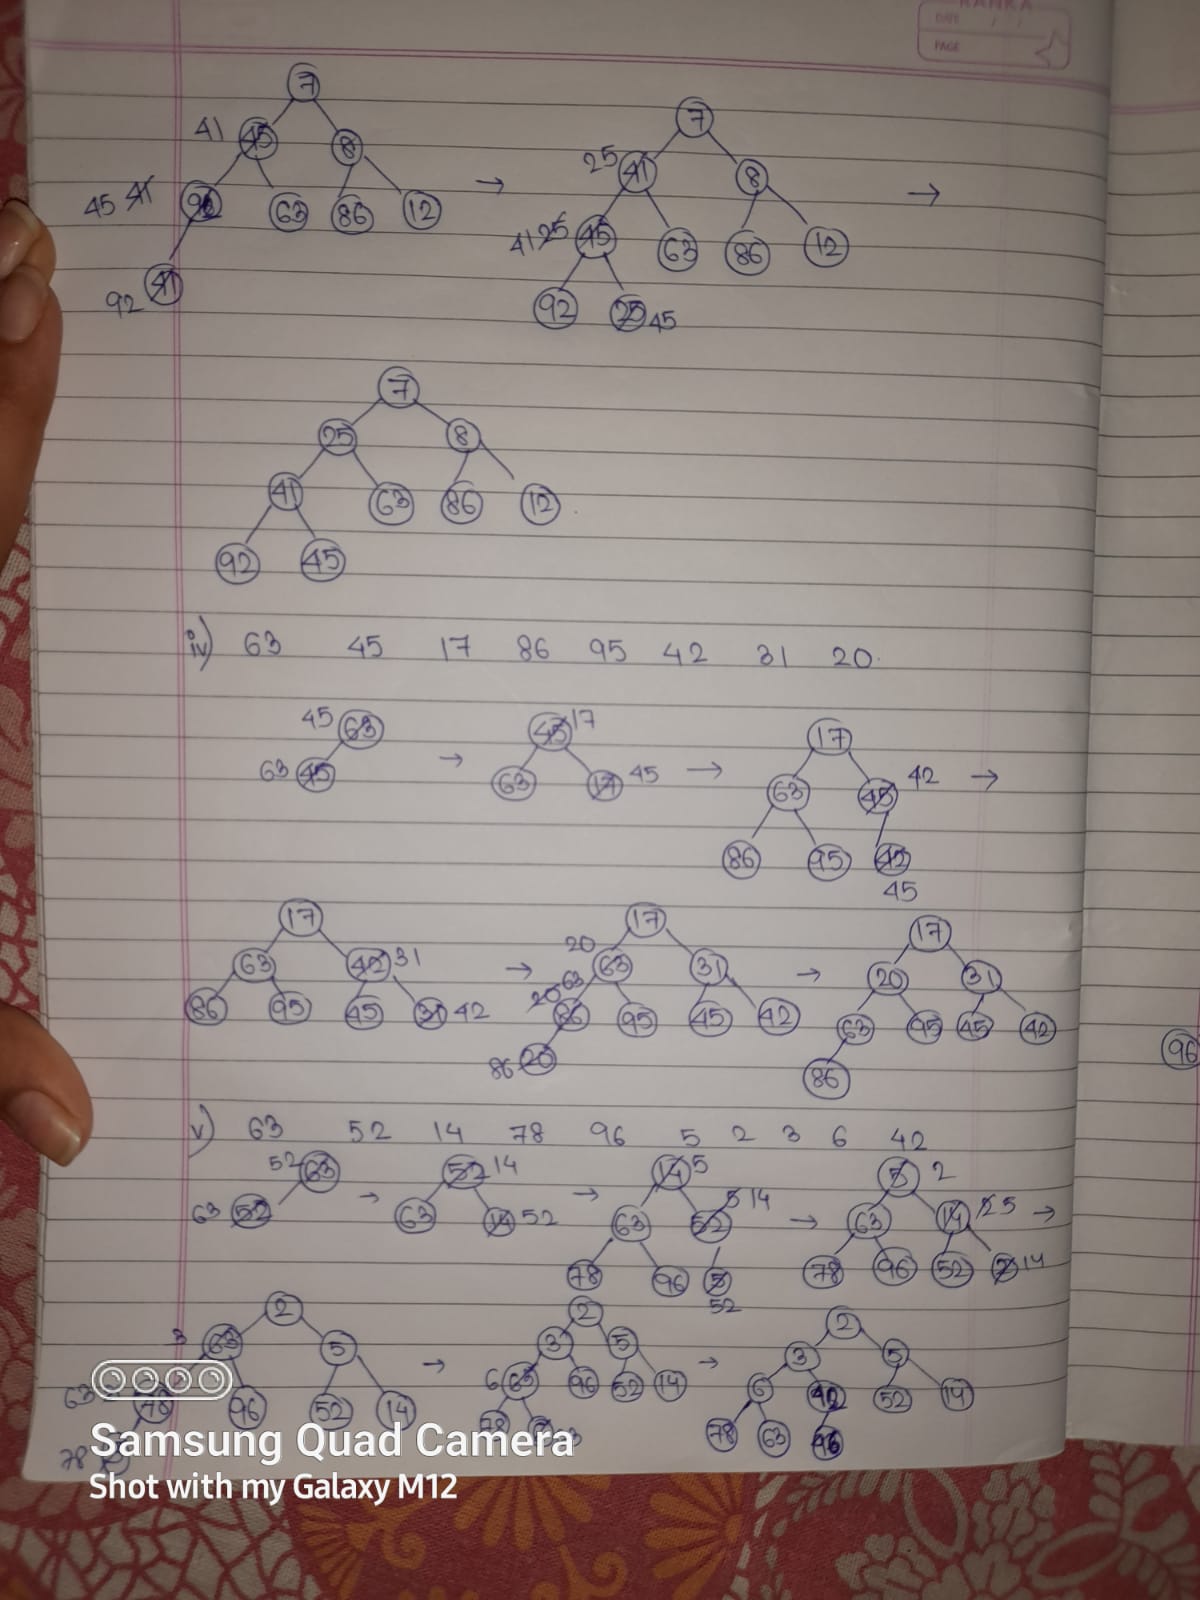 RANKA
DATE / /
PAGE
7
41 45 8
45 41 92 63 86 12
92 41
→
7
25 41 8
41 25 45 63 86 12
92 25 45
→
7
25 8
41 63 86 12
92 45
iv) 63 45 17 86 95 42 31 20
45 63
63 45
→
45 17
63 17 45
→
17
63 45 42
86 95 42
45
→
17
63 42 31
86 95 45 31 42
→
17
20 63 31
20 63 86 95 45 42
86 20
→
17
20 31
63 95 45 42
86
96
v) 63 52 14 78 96 5 2 3 6 42
52 63
63 52
→
52 14
63 14 52
→
14 5
63 52 5 14
78 96 5
52
→
5 2
63 14 2 5
78 96 52 2 14
→
2
3 63 5
63 78 96 52 14
78
→
2
3 5
6 63 96 52 14
78 63
→
2
3 5
6 42 52 14
78 63 96
Samsung Quad Camera
Shot with my Galaxy M12